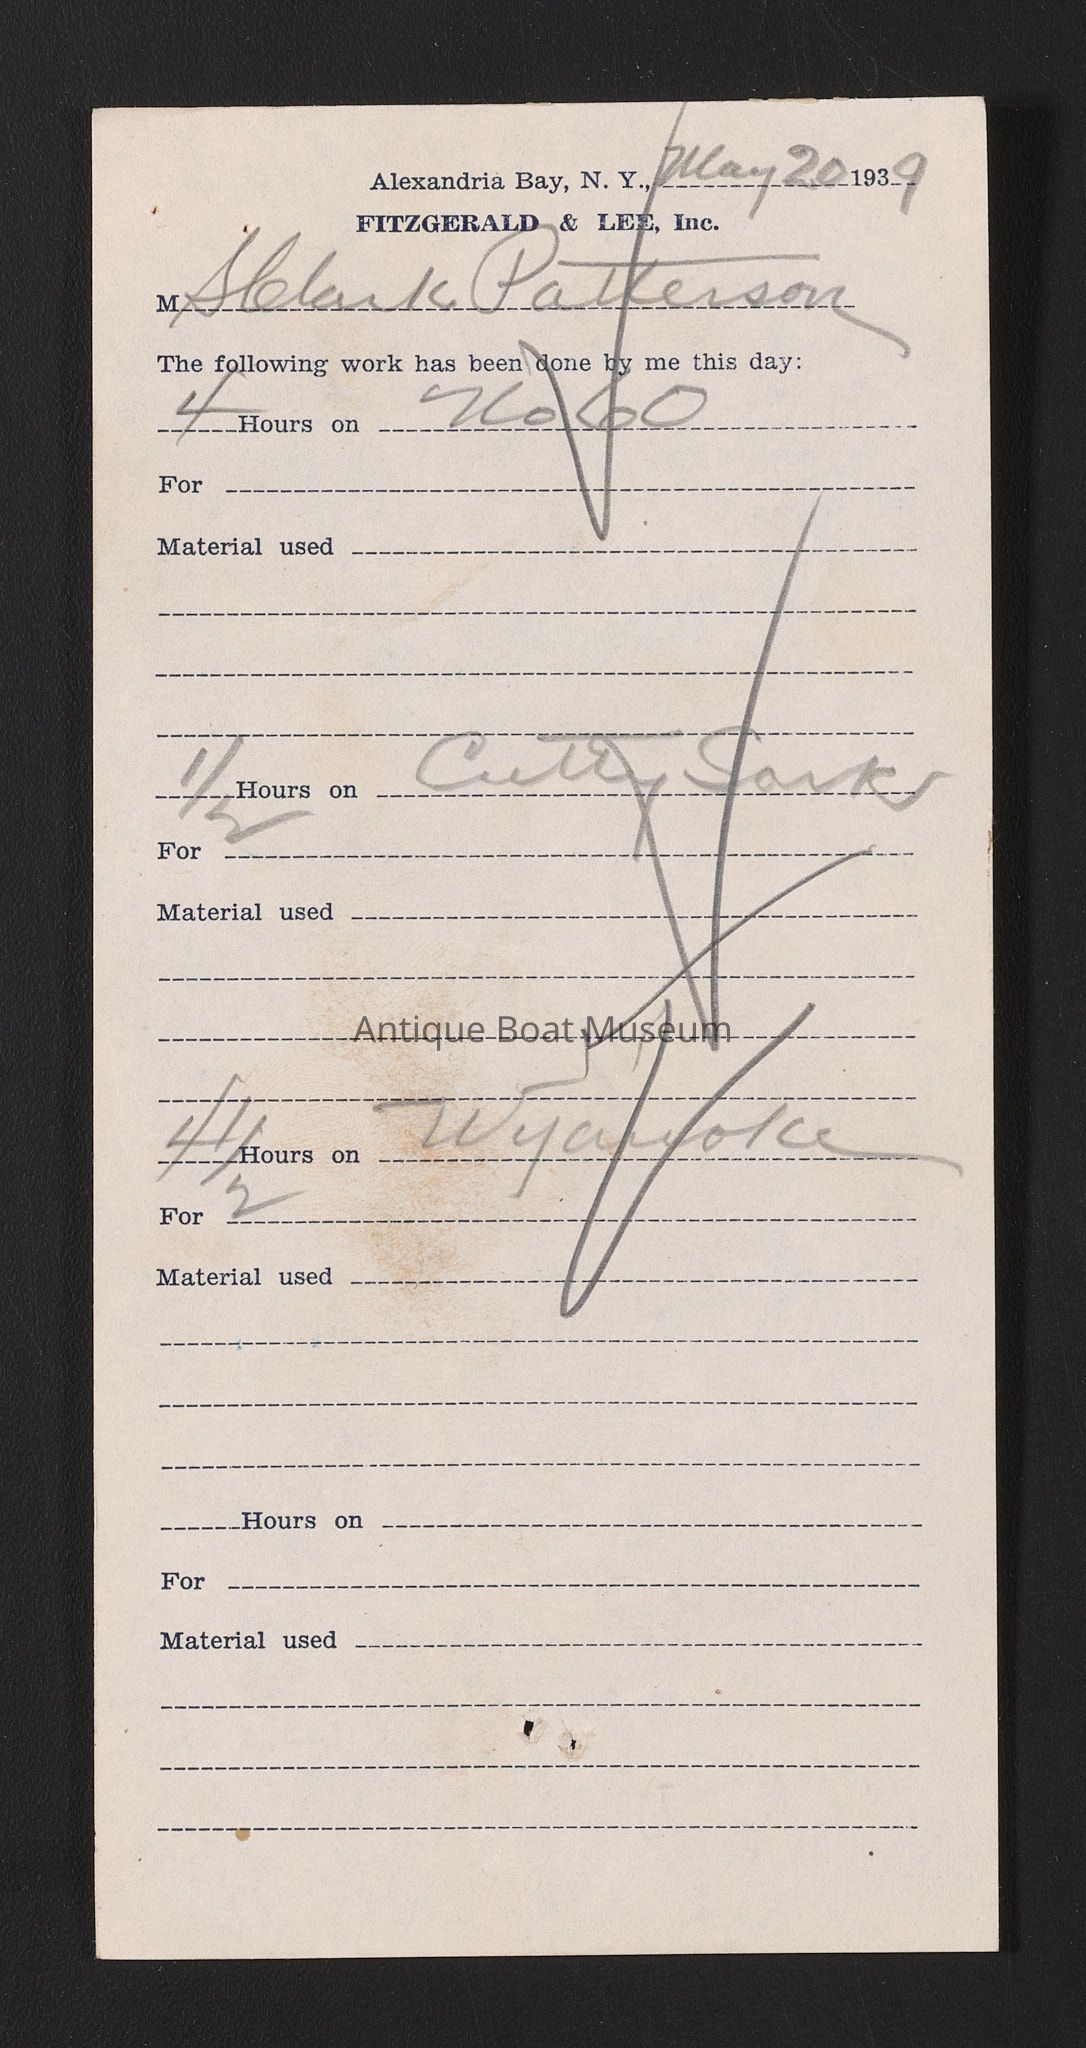 Alexandria Bay, N. Y., May 20 1939
FITZGERALD & LEE, Inc.
M SClark Patterson
The following work has been done by me this day:
4 Hours on
For
Material used
1/2 Hours on Cutty Sark
For
Material used
Antique Boat Museum
4 1/2 Hours on Wyanoke
For
Material used
Hours on
For
Material used